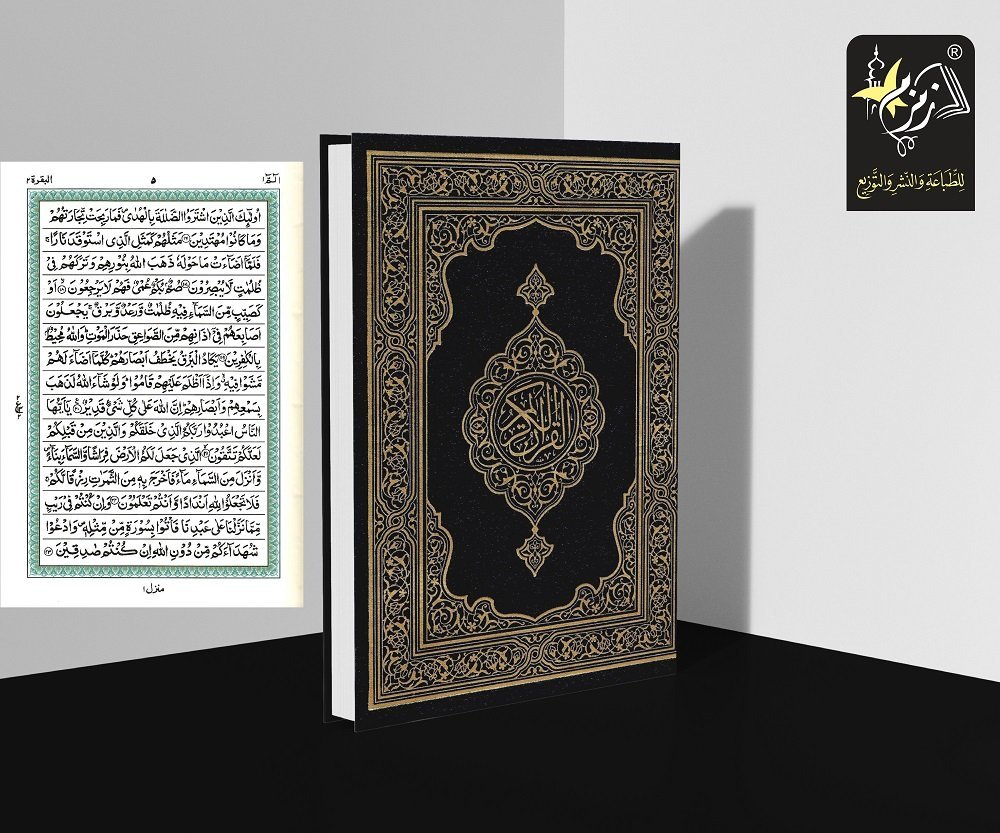 زمزم
®
للطباعة والنشر والتوزيع
القرآن الكريم
البقرة ٢
٥
الٓمّٓ ١
اُولٰٓئِكَ الَّذِيْنَ اشْتَرَوُا الضَّلٰلَةَ بِالْهُدٰى فَمَا رَبِحَتْ تِّجَارَتُهُمْ
وَمَا كَانُوْا مُهْتَدِيْنَ ١٦ مَثَلُهُمْ كَمَثَلِ الَّذِى اسْتَوْقَدَ نَارًا
فَلَمَّآ اَضَآءَتْ مَا حَوْلَهٗ ذَهَبَ اللّٰهُ بِنُوْرِهِمْ وَتَرَكَهُمْ فِىْ
ظُلُمٰتٍ لَّا يُبْصِرُوْنَ ١٧ صُمٌّۢ بُكْمٌ عُمْىٌ فَهُمْ لَا يَرْجِعُوْنَ ١٨ اَوْ
كَصَيِّبٍ مِّنَ السَّمَآءِ فِيْهِ ظُلُمٰتٌ وَّرَعْدٌ وَّبَرْقٌ يَجْعَلُوْنَ
اَصَابِعَهُمْ فِىْٓ اٰذَانِهِمْ مِّنَ الصَّوَاعِقِ حَذَرَ الْمَوْتِ وَاللّٰهُ مُحِيْطٌۢ
بِالْكٰفِرِيْنَ ١٩ يَكَادُ الْبَرْقُ يَخْطَفُ اَبْصَارَهُمْ كُلَّمَآ اَضَآءَ لَهُمْ
مَّشَوْا فِيْهِ وَاِذَآ اَظْلَمَ عَلَيْهِمْ قَامُوْا وَلَوْ شَآءَ اللّٰهُ لَذَهَبَ
بِسَمْعِهِمْ وَاَبْصَارِهِمْ اِنَّ اللّٰهَ عَلٰى كُلِّ شَىْءٍ قَدِيْرٌ ٢٠ يٰٓاَيُّهَا
النَّاسُ اعْبُدُوْا رَبَّكُمُ الَّذِىْ خَلَقَكُمْ وَالَّذِيْنَ مِنْ قَبْلِكُمْ
لَعَلَّكُمْ تَتَّقُوْنَ ٢١ الَّذِىْ جَعَلَ لَكُمُ الْاَرْضَ فِرَاشًا وَّالسَّمَآءَ بِنَآءً
وَّاَنْزَلَ مِنَ السَّمَآءِ مَآءً فَاَخْرَجَ بِهٖ مِنَ الثَّمَرٰتِ رِزْقًا لَّكُمْ
فَلَا تَجْعَلُوْا لِلّٰهِ اَنْدَادًا وَّاَنْتُمْ تَعْلَمُوْنَ ٢٢ وَاِنْ كُنْتُمْ فِىْ رَيْبٍ
مِّمَّا نَزَّلْنَا عَلٰى عَبْدِنَا فَاْتُوْا بِسُوْرَةٍ مِّنْ مِّثْلِهٖ وَادْعُوْا
شُهَدَآءَكُمْ مِّنْ دُوْنِ اللّٰهِ اِنْ كُنْتُمْ صٰدِقِيْنَ ٢٣
منزل ١